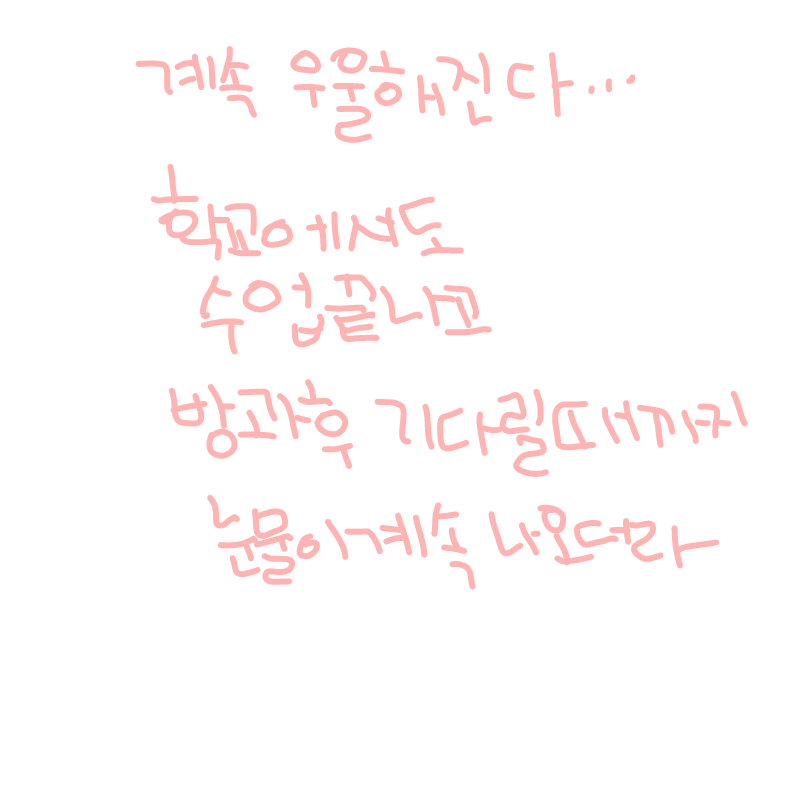 계속 우울해진다...
학교에서도
수업끝나고
방과후 기다릴때까지
눈물이계속 나오더라